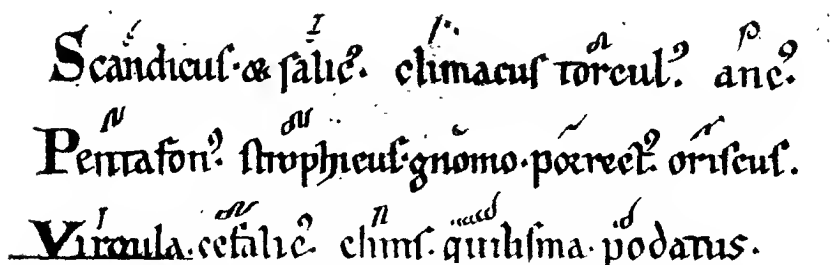 Scandicuſ · & ſalicꝰ. climacuſ torculꝰ. ancꝰ.
Pentafonꝰ. ſtrophicuſ · gnomo · porrectꝰ. oriſcuſ.
Virgula · cefalicꝰ. cliniſ. quiliſma · podatus.